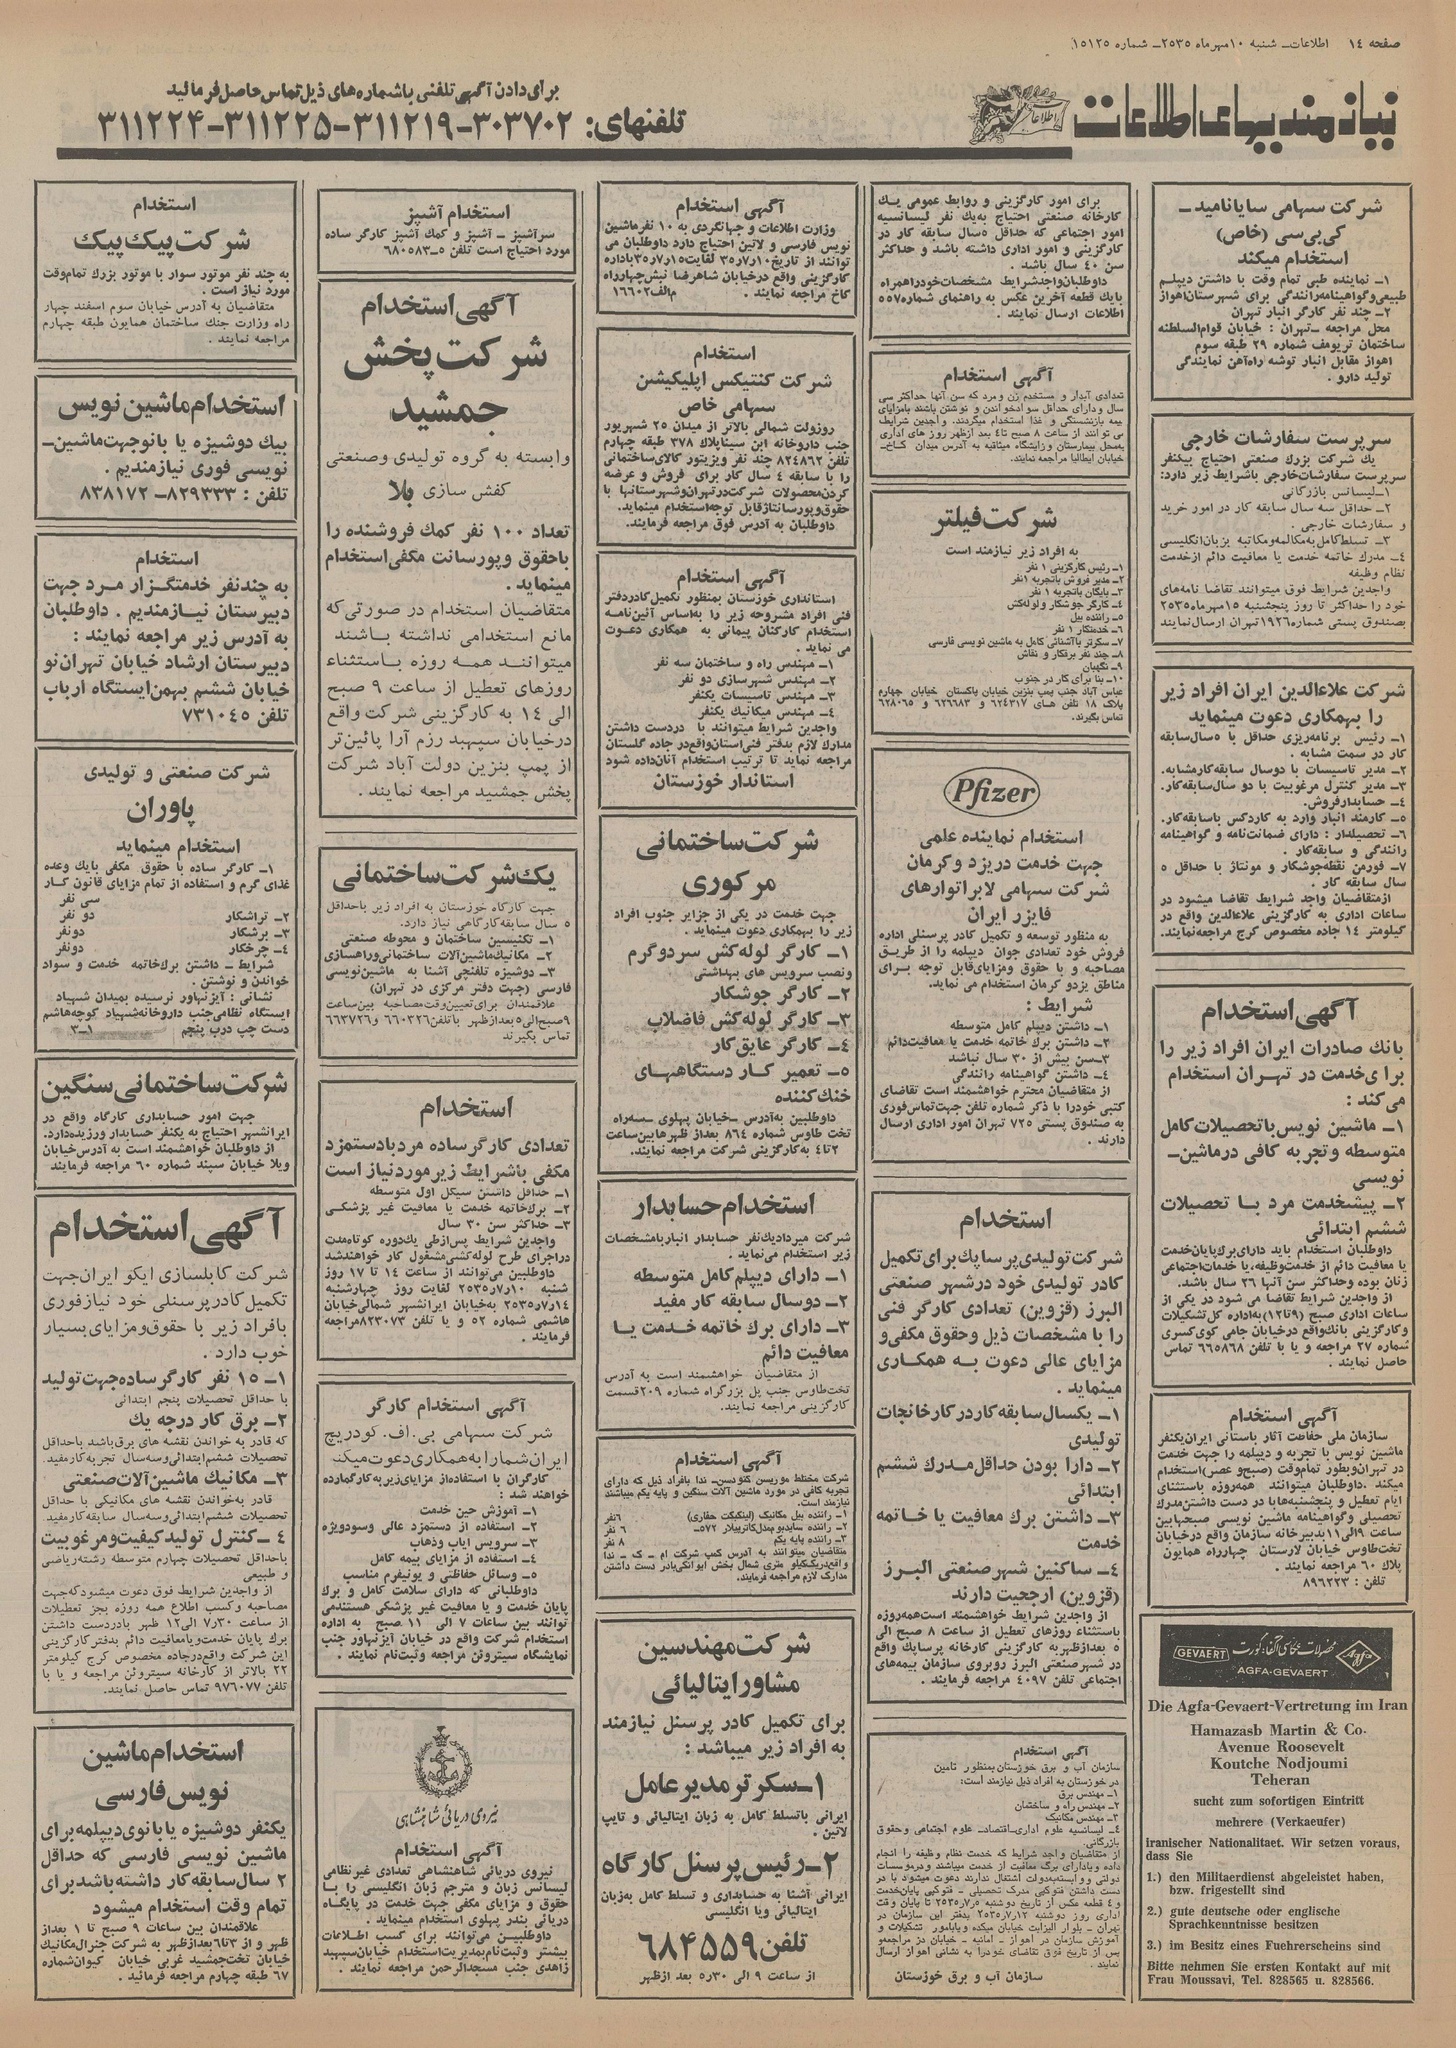 صفحه ۱۴ اطلاعات ـ شنبه ۱۰ مهرماه ۲۵۳۵ ـ شماره ۱۵۱۲۵
نیازمندیهای اطلاعات
برای دادن آگهی تلفنی با شماره های ذیل تماس حاصل فرمائید
تلفنهای: ۳۰۳۷۰۲-۳۱۱۲۱۹-۳۱۱۲۲۵-۳۱۱۲۲۴
شرکت سهامی سایانامید ـ
کی بی سی (خاص)
استخدام میکند
۱ـ نماینده طبی تمام وقت با داشتن دیپلم
طبیعی وگواهینامه رانندگی برای شهرستان اهواز
۲ـ چند نفر کارگر انبار تهران
محل مراجعه ـ تهران : خیابان قوام السلطنه
ساختمان تریومف شماره ۲۹ طبقه سوم
اهواز مقابل انبار توشه راه آهن نمایندگی
تولید دارو .
سرپرست سفارشات خارجی
یک شرکت بزرگ صنعتی احتیاج بیکنفر
سرپرست سفارشات خارجی باشرایط زیر دارد:
۱ـ لیسانس بازرگانی
۲ـ حداقل سه سال سابقه کار در امور خرید
و سفارشات خارجی .
۳ـ تسلط کامل به مکالمه و مکاتبه بزبان انگلیسی
۴ـ مدرک خاتمه خدمت یا معافیت دائم از خدمت
نظام وظیفه
واجدین شرایط فوق میتوانند تقاضا نامه های
خود را حداکثر تا روز پنجشنبه ۱۵ مهرماه ۲۵۳۵
بصندوق پستی شماره ۱۹۲۶ تهران ارسال نمایند
شرکت علاءالدین ایران افراد زیر
را بهمکاری دعوت مینماید
۱ـ رئیس برنامه ریزی حداقل با ۵ سال سابقه
کار در سمت مشابه .
۲ـ مدیر تاسیسات با دو سال سابقه کار مشابه.
۳ـ مدیر کنترل مرغوبیت با دو سال سابقه کار.
۴ـ حسابدار فروش.
۵ـ کارمند انبار وارد به کاردکس باسابقه کار.
۶ـ تحصیلدار : دارای ضمانت نامه و گواهینامه
رانندگی و سابقه کار .
۷ـ فورمن نقطه جوشکار و مونتاژ با حداقل ۵
سال سابقه کار .
ازمتقاضیان واجد شرایط تقاضا میشود در
ساعات اداری به کارگزینی علاءالدین واقع در
کیلومتر ۱۴ جاده مخصوص کرج مراجعه نمایند.
آگهی استخدام
بانک صادرات ایران افراد زیر را
برای خدمت در تهران استخدام
می کند :
۱ـ ماشین نویس با تحصیلات کامل
متوسطه و تجربه کافی در ماشین ـ
نویسی
۲ـ پیشخدمت مرد با تحصیلات
ششم ابتدائی
داوطلبان استخدام باید دارای برگ پایان خدمت
یا معافیت دائم از خدمت وظیفه، یا خدمات اجتماعی
زنان بوده وحداکثر سن آنها ۲۶ سال باشد.
از واجدین شرایط تقاضا می شود در یکی از
ساعات اداری صبح (۹ تا ۱۲) به اداره کل تشکیلات
وکارگزینی بانک واقع درخیابان جامی کوی کسری
شماره ۲۷ مراجعه و یا با تلفن ۶۶۵۸۶۸ تماس
حاصل نمایند .
آگهی استخدام
سازمان ملی حفاظت آثار باستانی ایران یکنفر
ماشین نویس با تجربه و دیپلمه را جهت خدمت
در تهران و بطور تمام وقت (صبح و عصر) استخدام
میکند .داوطلبان میتوانند همه روزه باستثنای
ایام تعطیل و پنجشنبه ها با در دست داشتن مدرک
تحصیلی و گواهینامه ماشین نویسی صبحها بین
ساعت ۹ الی ۱۱ بدبیرخانه سازمان واقع در خیابان
تخت طاوس خیابان لارستان چهارراه همایون
پلاک ۶۰ مراجعه نمایند .
تلفن : ۸۹۶۲۲۳
محصولات عکاسی آگفا گورت
GEVAERT
Agfa
AGFA-GEVAERT
Die Agfa-Gevaert-Vertretung im Iran
Hamazasb Martin & Co.
Avenue Roosevelt
Koutche Nodjoumi
Teheran
sucht zum sofortigen Eintritt
mehrere (Verkaeufer)
iranischer Nationalitaet. Wir setzen voraus,
dass Sie
1.) den Militaerdienst abgeleistet haben,
bzw. frigestellt sind
2.) gute deutsche oder englische
Sprachkenntnisse besitzen
3.) im Besitz eines Fuehrerscheins sind
Bitte nehmen Sie ersten Kontakt auf mit
Frau Moussavi, Tel. 828565 u. 828566.
برای امور کارگزینی و روابط عمومی یک
کارخانه صنعتی احتیاج به یک نفر لیسانسیه
امور اجتماعی که حداقل ۵ سال سابقه کار در
کارگزینی و امور اداری داشته باشد و حداکثر
سن ۴۰ سال باشد .
داوطلبان واجد شرایط مشخصات خود را همراه
با یک قطعه آخرین عکس به راهنمای شماره ۵۵۷
اطلاعات ارسال نمایند .
آگهی استخدام
تعدادی آبدار و مستخدم زن و مرد که سن آنها حداکثر سی
سال و دارای حداقل سواد خواندن و نوشتن باشند بامزایای
بیمه بازنشستگی و غذا استخدام میگردند. واجدین شرایط
می توانند از ساعت ۸ صبح تا ۴ بعد ازظهر روز های اداری
بمحل بیمارستان و زایشگاه میثاقیه به آدرس میدان کاخ ـ
خیابان ایتالیا مراجعه نمایند.
شرکت فیلتر
به افراد زیر نیازمند است
۱ـ رئیس کارگزینی ۱ نفر
۲ـ مدیر فروش باتجربه ۱ نفر
۳ـ بایگان باتجربه ۱ نفر
۴ـ کارگر جوشکار و لوله کش
۵ـ راننده بیل
۶ـ خدمتکار ۱ نفر
۷ـ سکرتر با آشنائی کامل به ماشین نویسی فارسی
۸ـ چند نفر برقکار و نقاش
۹ـ نگهبان
۱۰ـ بنا برای کار در جنوب
عباس آباد جنب پمپ بنزین خیابان پاکستان خیابان چهارم
پلاک ۱۸ تلفن های ۶۲۴۳۱۷ و ۶۲۶۶۸۳ و ۶۲۸۰۶۵
تماس بگیرند.
Pfizer
استخدام نماینده علمی
جهت خدمت در یزد و کرمان
شرکت سهامی لابراتوارهای
فایزر ایران
به منظور توسعه و تکمیل کادر پرسنلی اداره
فروش خود تعدادی جوان دیپلمه را از طریق
مصاحبه و با حقوق و مزایای قابل توجه برای
مناطق یزد و کرمان استخدام می نماید.
شرایط :
۱ـ داشتن دیپلم کامل متوسطه
۲ـ داشتن برگ خاتمه خدمت یا معافیت دائم
۳ـ سن بیش از ۳۰ سال نباشد
۴ـ داشتن گواهینامه رانندگی
از متقاضیان محترم خواهشمند است تقاضای
کتبی خودرا با ذکر شماره تلفن جهت تماس فوری
به صندوق پستی ۷۲۵ تهران امور اداری ارسال
دارند .
استخدام
شرکت تولیدی پرساپک برای تکمیل
کادر تولیدی خود در شهر صنعتی
البرز (قزوین) تعدادی کارگر فنی
را با مشخصات ذیل و حقوق مکفی و
مزایای عالی دعوت به همکاری
مینماید .
۱ـ یکسال سابقه کار در کارخانجات
تولیدی
۲ـ دارا بودن حداقل مدرک ششم
ابتدائی
۳ـ داشتن برگ معافیت یا خاتمه
خدمت
۴ـ ساکنین شهر صنعتی البرز
(قزوین) ارجحیت دارند
از واجدین شرایط خواهشمند است همه روزه
باستثناء روزهای تعطیل از ساعت ۸ صبح الی
۵ بعدازظهر به کارگزینی کارخانه پرساپک واقع
در شهر صنعتی البرز روبروی سازمان بیمه های
اجتماعی تلفن ۴۰۹۷ مراجعه فرمایند .
آگهی استخدام
سازمان آب و برق خوزستان بمنظور تامین
در خوزستان به افراد ذیل نیازمند است:
۱ـ مهندس برق
۲ـ مهندس راه و ساختمان
۳ـ مهندس مکانیک
۴ـ لیسانسیه علوم اداری ـ اقتصاد ـ علوم اجتماعی و حقوق
بازرگانی.
از متقاضیان واجد شرایط که خدمت نظام وظیفه را انجام
داده و یا دارای برگ معافیت از خدمت میباشند و در موسسات
دولتی و وابسته بدولت اشتغال ندارند دعوت میشود با در
دست داشتن فتوکپی مدرک تحصیلی ـ فتوکپی پایان خدمت
و ۴ قطعه عکس از تاریخ دوشنبه ۲۵۳۵/۷/۵ تا پایان وقت
اداری روز دوشنبه ۲۵۳۵/۷/۱۲ بدفتر این سازمان در
تهران ـ بلوار الیزابت خیابان میکده و یا بامور تشکیلات و
آموزش سازمان در اهواز ـ امانیه ـ خیابان دز مراجعه و
پس از تاریخ فوق تقاضای خودرا به نشانی اهواز ارسال
نمایند .
سازمان آب و برق خوزستان
آگهی استخدام
وزارت اطلاعات و جهانگردی به ۱۰ نفر ماشین
نویس فارسی و لاتین احتیاج دارد داوطلبان می
توانند از تاریخ ۳۵/۷/۱۰ لغایت ۳۵/۷/۱۵ باداره
کارگزینی واقع درخیابان شاهرضا نبش چهارراه
کاخ مراجعه نمایند . م الف ۱۶۶۰۲
استخدام
شرکت کنتیکس اپلیکیشن
سهامی خاص
روزولت شمالی بالاتر از میدان ۲۵ شهریور
جنب داروخانه ابن سینا پلاک ۳۷۸ طبقه چهارم
تلفن ۸۲۴۸۶۲ چند نفر ویزیتور کالای ساختمانی
را با سابقه ۴ سال کار برای فروش و عرضه
کردن محصولات شرکت در تهران و شهرستانها با
حقوق و پورسانتاژ قابل توجه استخدام مینماید.
داوطلبان به آدرس فوق مراجعه فرمایند.
آگهی استخدام
استانداری خوزستان بمنظور تکمیل کادر دفتر
فنی افراد مشروحه زیر را به اساس آئین نامه
استخدام کارکنان پیمانی به همکاری دعوت
می نماید .
۱ـ مهندس راه و ساختمان سه نفر
۲ـ مهندس شهرسازی دو نفر
۳ـ مهندس تاسیسات یکنفر
۴ـ مهندس میکانیک یکنفر
واجدین شرایط میتوانند با دردست داشتن
مدارک لازم بدفتر فنی استان واقع در جاده گلستان
مراجعه نماید تا ترتیب استخدام آنان داده شود
استاندار خوزستان
شرکت ساختمانی
مرکوری
جهت خدمت در یکی از جزایر جنوب افراد
زیر را بهمکاری دعوت مینماید .
۱ـ کارگر لوله کش سرد و گرم
ونصب سرویس های بهداشتی
۲ـ کارگر جوشکار
۳ـ کارگر لوله کش فاضلاب
۴ـ کارگر عایق کار
۵ـ تعمیر کار دستگاههای
خنک کننده
داوطلبین به آدرس ـ خیابان پهلوی ـ سه راه
تخت طاوس شماره ۸۶۴ بعداز ظهرها بین ساعت
۲ تا ۴ به کارگزینی شرکت مراجعه نمایند.
استخدام حسابدار
شرکت میرداد یک نفر حسابدار انبار با مشخصات
زیر استخدام می نماید .
۱ـ دارای دیپلم کامل متوسطه
۲ـ دو سال سابقه کار مفید
۳ـ دارای برگ خاتمه خدمت یا
معافیت دائم
از متقاضیان خواهشمند است به آدرس
تخت طاوس جنب پل بزرگراه شماره ۲۰۹ قسمت
کارگزینی مراجعه نمایند.
آگهی استخدام
شرکت مختلط موریسن کنودسن ـ ندا بافراد ذیل که دارای
تجربه کافی در مورد ماشین آلات سنگین و پایه یکم میباشند
نیازمند است.
۱ـ راننده بیل مکانیک (لینکبلت حفاری) ۶ نفر
۲ـ راننده سایدبوم مدل کاترپیلار ۵۷۲ـ ۶ نفر
۳ـ راننده پایه یکم ۸ نفر
متقاضیان میتوانند به آدرس کمپ شرکت ام ـ ک ـ ندا
واقع در یک کیلو متری شمال بخش ایوانکی با در دست داشتن
مدارک لازم مراجعه فرمایند.
شرکت مهندسین
مشاور ایتالیائی
برای تکمیل کادر پرسنل نیازمند
به افراد زیر میباشد :
۱ـ سکرتر مدیر عامل
ایرانی باتسلط کامل به زبان ایتالیائی و تایپ
لاتین .
۲ـ رئیس پرسنل کارگاه
ایرانی آشنا به حسابداری و تسلط کامل به زبان
ایتالیائی ویا انگلیسی
تلفن ۶۸۴۵۵۹
از ساعت ۹ الی ۵ر۳۰ بعد ازظهر
استخدام آشپز
سرآشپز ـ آشپز و کمک آشپز کارگر ساده
مورد احتیاج است تلفن ۵ـ۶۸۰۵۸۳
آگهی استخدام
شرکت پخش
جمشید
وابسته به گروه تولیدی و صنعتی
کفش سازی بلا
تعداد ۱۰۰ نفر کمک فروشنده را
باحقوق و پورسانت مکفی استخدام
مینماید .
متقاضیان استخدام در صورتی که
مانع استخدامی نداشته باشند
میتوانند همه روزه باستثناء
روزهای تعطیل از ساعت ۹ صبح
الی ۱۴ به کارگزینی شرکت واقع
درخیابان سپهبد رزم آرا پائین تر
از پمپ بنزین دولت آباد شرکت
پخش جمشید مراجعه نمایند .
یک شرکت ساختمانی
جهت کارگاه خوزستان به افراد زیر باحداقل
۵ سال سابقه کارگاهی نیاز دارد.
۱ـ تکنیسین ساختمان و محوطه صنعتی
۲ـ مکانیک ماشین آلات ساختمانی و راهسازی
۳ـ دوشیزه تلفنچی آشنا به ماشین نویسی
فارسی (جهت دفتر مرکزی در تهران)
علاقمندان برای تعیین وقت مصاحبه بین ساعت
۹ صبح الی ۵ بعدازظهر با تلفن ۶۶۰۳۲۶ و ۶۶۳۷۲۶
تماس بگیرند
استخدام
تعدادی کارگر ساده مرد بادستمزد
مکفی باشرایط زیر مورد نیاز است
۱ـ حداقل داشتن سیکل اول متوسطه
۲ـ برگ خاتمه خدمت یا معافیت غیر پزشکی
۳ـ حداکثر سن ۳۰ سال
واجدین شرایط پس از طی یک دوره کوتاه مدت
دراجرای طرح لوله کشی مشغول کار خواهند شد
داوطلبین می توانند از ساعت ۱۴ تا ۱۷ روز
شنبه ۲۵۳۵/۷/۱۰ لغایت روز چهارشنبه
۲۵۳۵/۷/۱۴ به خیابان ایرانشهر شمالی خیابان
هاشمی شماره ۵۲ و یا تلفن ۸۲۳۰۷۳ مراجعه
فرمایند .
آگهی استخدام کارگر
شرکت سهامی بی. اف. گودریچ
ایران شمارا به همکاری دعوت میکند
کارگران با استفاده از مزایای زیر به کار گمارده
خواهند شد :
۱ـ آموزش حین خدمت
۲ـ استفاده از دستمزد عالی و سود ویژه
۳ـ سرویس ایاب و ذهاب
۴ـ استفاده از مزایای بیمه کامل
۵ـ وسائل حفاظتی و یونیفرم مناسب
داوطلبانی که دارای سلامت کامل و برگ
پایان خدمت و یا معافیت غیر پزشکی هستند می
توانند بین ساعات ۷ الی ۱۱ صبح به اداره
استخدام شرکت واقع در خیابان آیزنهاور جنب
نمایشگاه سیتروئن مراجعه و ثبت نام نمایند .
نیروی دریائی شاهنشاهی
آگهی استخدام
نیروی دریائی شاهنشاهی تعدادی غیر نظامی
لیسانس زبان و مترجم زبان انگلیسی را با
حقوق و مزایای مکفی جهت خدمت در پایگاه
دریائی بندر پهلوی استخدام مینماید .
داوطلبین می توانند برای کسب اطلاعات
بیشتر و ثبت نام بمدیریت استخدام خیابان سپهبد
زاهدی جنب مسجدالرحمن مراجعه نمایند .
استخدام
شرکت پیک پیک
به چند نفر موتور سوار با موتور بزرگ تمام وقت
مورد نیاز است .
متقاضیان به آدرس خیابان سوم اسفند چهار
راه وزارت جنگ ساختمان همایون طبقه چهارم
مراجعه نمایند .
استخدام ماشین نویس
بیک دوشیزه یا بانو جهت ماشین ـ
نویسی فوری نیازمندیم .
تلفن : ۸۲۹۳۳۳ـ ۸۳۸۱۷۲
استخدام
به چندنفر خدمتگزار مرد جهت
دبیرستان نیازمندیم . داوطلبان
به آدرس زیر مراجعه نمایند :
دبیرستان ارشاد خیابان تهران نو
خیابان ششم بهمن ایستگاه ارباب
تلفن ۷۳۱۰۴۵
شرکت صنعتی و تولیدی
پاوران
استخدام مینماید
۱ـ کارگر ساده با حقوق مکفی با یک وعده
غذای گرم و استفاده از تمام مزایای قانون کار
سی نفر
۲ـ تراشکار دو نفر
۳ـ برشکار دونفر
۴ـ چرخکار دونفر
شرایط ـ داشتن برگ خاتمه خدمت و سواد
خواندن و نوشتن .
نشانی : آیزنهاور نرسیده بمیدان شهیاد
ایستگاه نظامی جنب داروخانه شهیاد کوچه هاشم
دست چپ درب پنجم ۱ـ۳
شرکت ساختمانی سنگین
جهت امور حسابداری کارگاه واقع در
ایرانشهر احتیاج به یکنفر حسابدار ورزیده دارد.
از داوطلبان خواهشمند است به آدرس خیابان
ویلا خیابان سپند شماره ۶۰ مراجعه فرمایند
آگهی استخدام
شرکت کابلسازی ایکو ایران جهت
تکمیل کادر پرسنلی خود نیاز فوری
بافراد زیر با حقوق و مزایای بسیار
خوب دارد .
۱ـ ۱۵ نفر کارگر ساده جهت تولید
با حداقل تحصیلات پنجم ابتدائی
۲ـ برق کار درجه یک
که قادر به خواندن نقشه های برق باشد باحداقل
تحصیلات ششم ابتدائی و سه سال تجربه کار مفید.
۳ـ مکانیک ماشین آلات صنعتی
قادر به خواندن نقشه های مکانیکی با حداقل
تحصیلات ششم ابتدائی و سه سال سابقه کار مفید
۴ـ کنترل تولید کیفیت و مرغوبیت
باحداقل تحصیلات چهارم متوسطه رشته ریاضی
و طبیعی
از واجدین شرایط فوق دعوت میشود که جهت
مصاحبه وکسب اطلاع همه روزه بجز تعطیلات
از ساعت ۷ر۳۰ الی ۱۲ ظهر بادردست داشتن
برگ پایان خدمت یا معافیت دائم بدفتر کارگزینی
این شرکت واقع در جاده مخصوص کرج کیلومتر
۲۲ بالاتر از کارخانه سیتروئن مراجعه و یا با
تلفن ۹۷۶۰۷۷ تماس حاصل نمایند.
استخدام ماشین
نویس فارسی
یکنفر دوشیزه یا بانوی دیپلمه برای
ماشین نویسی فارسی که حداقل
۲ سال سابقه کار داشته باشد برای
تمام وقت استخدام میشود
علاقمندان بین ساعات ۹ صبح تا ۱ بعداز
ظهر و از ۳ تا ۶ بعدازظهر به شرکت جنرال مکانیک
خیابان تخت جمشید غربی خیابان کیوان شماره
۶۷ طبقه چهارم مراجعه فرمائید .